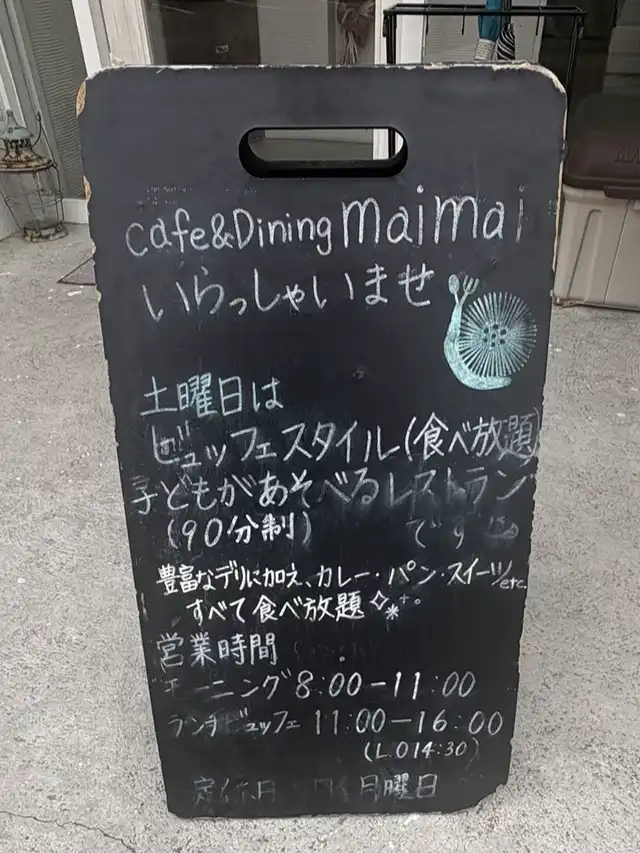 cafe&Dining maimai
いらっしゃいませ
土曜日は
ビュッフェスタイル(食べ放題)
子どもがあそべるレストラン
(90分制) です
豊富なデリに加え、カレー・パン・スイーツetc.
すべて食べ放題
営業時間
モーニング 8:00-11:00
ランチビュッフェ 11:00-16:00
(L.O14:30)
定休日 月曜日